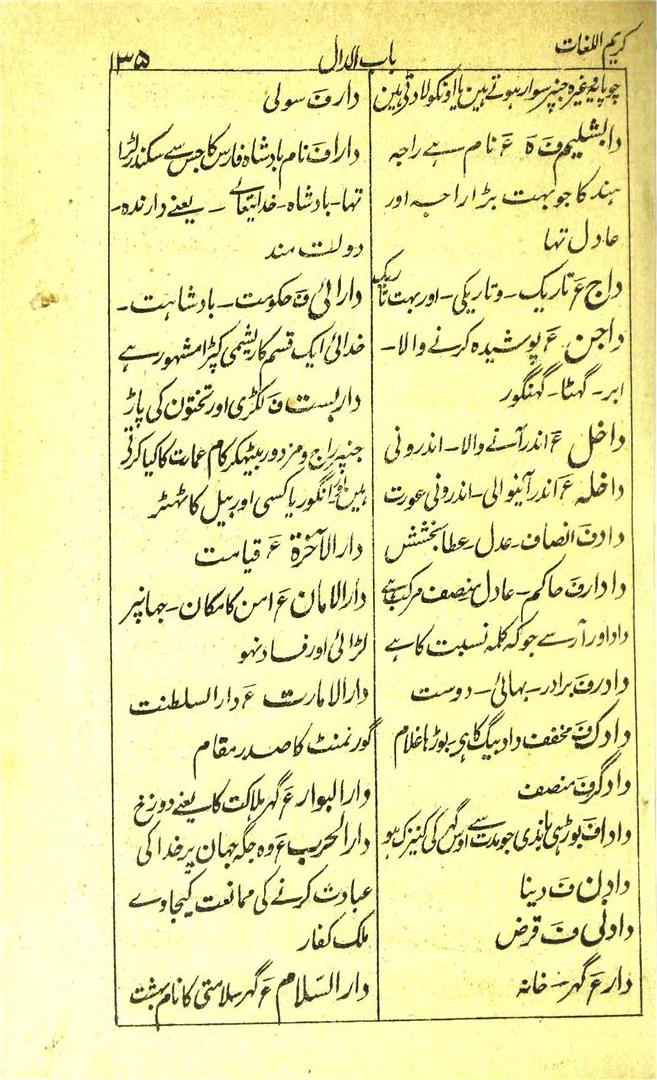 کریم اللغات
باب الدال
۱۳۵
چوپایہ وغیرہ جنپر سوار ہوتے ہین یا اونکو لادتے ہین
دابشلیم ف ہ ع نام ہے راجہ
ہند کا جو بہت بڑا راجہ اور
عادل تہا
داج ع تاریک ۔ و تاریکی ۔ اور بہت تاریک
داجن ع پوشیدہ کرنے والا ۔
ابر ۔ گہٹا ۔ گہنگور
داخل ع اندر آنے والا ۔ اندرونی
داخلہ ع اندر آنیوالی ۔ اندرونی عورت
داد ف انصاف ۔ عدل ۔ عطا بخشش
دادار ف حاکم ۔ عادل منصف مرکب ہے
داد اور آر سے جو کہ کلمہ نسبت کا ہے
دادر ف برادر ۔ بہائی ۔ دوست
دادک ف مخفف داد بیگ کا ہی ۔ بوڑہا غلام
دادگر ف منصف
دادا ف بوڑہی باندی جو مدت سے اوس گہر کی کنیزک ہو
دادن ف دینا
دادنی ف قرض
دار ع گہر ۔ خانہ
دار ف سولی
دارا ف نام بادشاہ فارس کا جس سے سکندر لڑا
تہا ۔ بادشاہ ۔ خدایتعالے ۔ یعنے دارندہ ۔
دولت مند
دارائی ف حکومت ۔ بادشاہت ۔
خدائی ایک قسم کا ریشمی کپڑا مشہور ہے
داربست ف لکڑی اور تختون کی پاڑ
جنپر راج و مزدور بیٹہکر کام عمارت کا کیا کرتی
ہین انگور یا کسی اور بیل کا ٹہٹر
دار الآخرۃ ع قیامت
دار الامان ع امن کا مکان ۔ جہانپر
لڑائی اور فساد نہو
دار الامارت ع دار السلطنت
گورنمنٹ کا صدر مقام
دار البوار ع گہر ہلاکت کا یعنے دوزخ
دار الحرب ع وہ جگہ جہان پر خدا کی
عبادت کرنے کی ممانعت کیجاوے
ملک کفار
دار السّلام ع گہر سلامتی کا نام بہشت